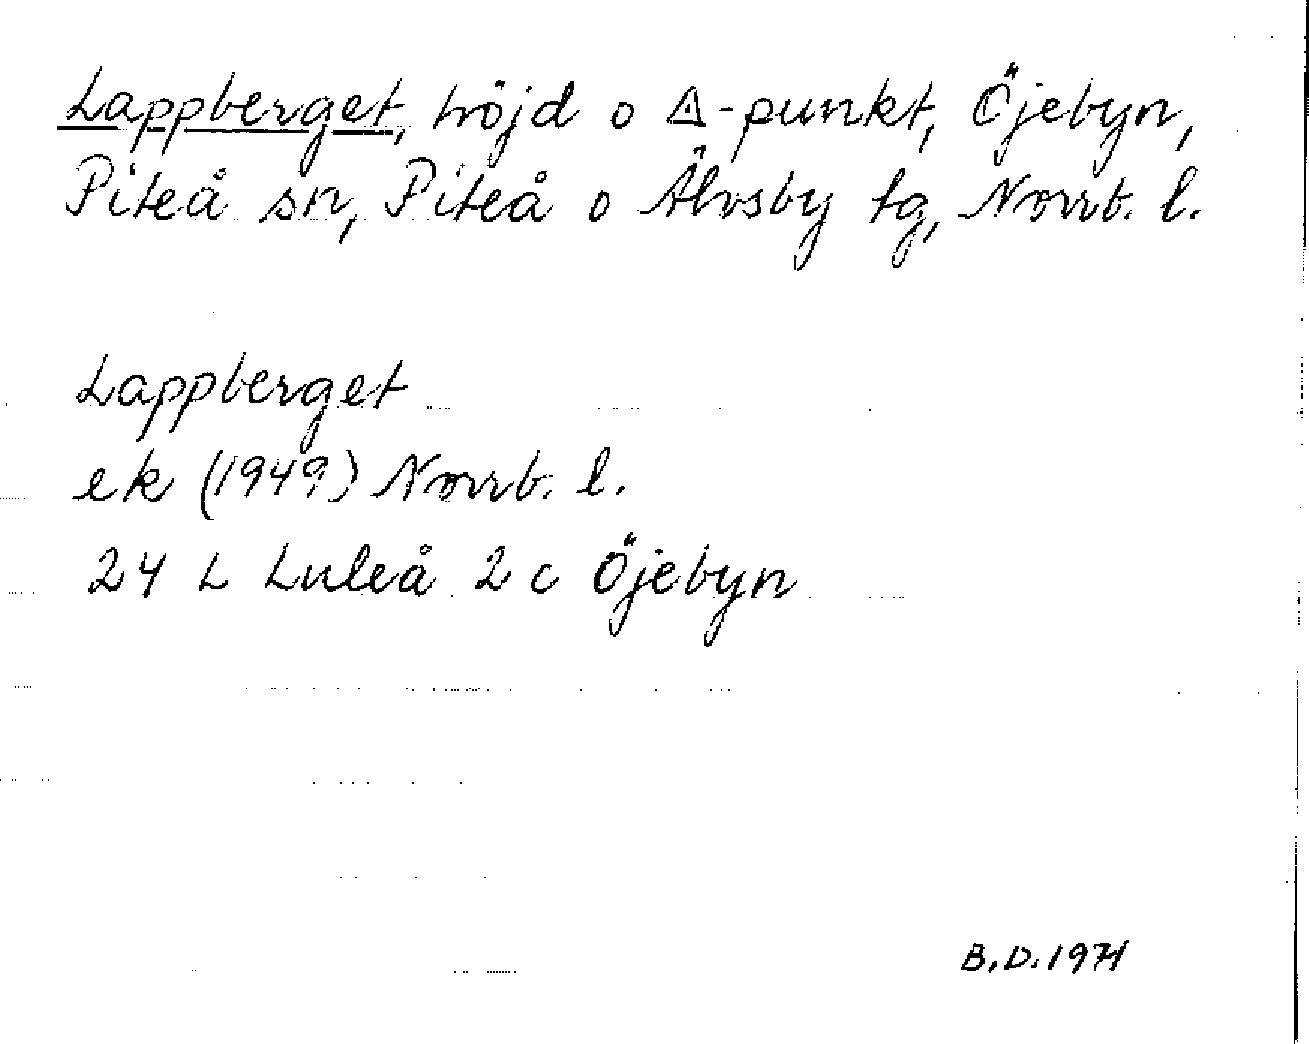 Lappberget, höjd o △-punkt, Öjebyn,
Piteå sn, Piteå o Älvsby tg, Norrb. l.
Lappberget
ek (1949) Norrb. l.
24 L Luleå 2 c Öjebyn
B.D. 1971